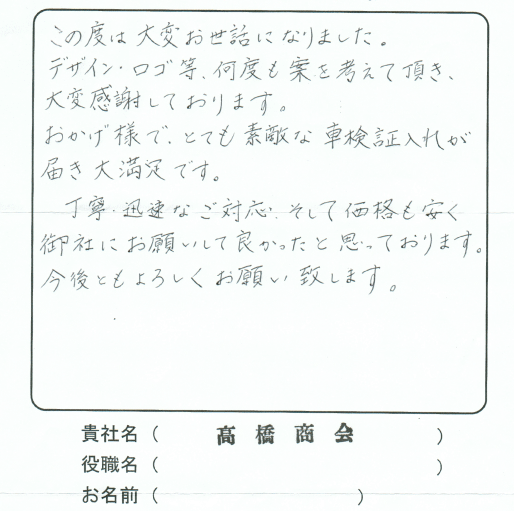 この度は大変お世話になりました。
デザイン・ロゴ等、何度も案を考えて頂き、
大変感謝しております。
おかげ様で、とても素敵な車検証入れが
届き大満足です。
丁寧・迅速なご対応、そして価格も安く
御社にお願いして良かったと思っております。
今後ともよろしくお願い致します。
貴社名（ 髙橋商会 ）
役職名（ ）
お名前（ ）